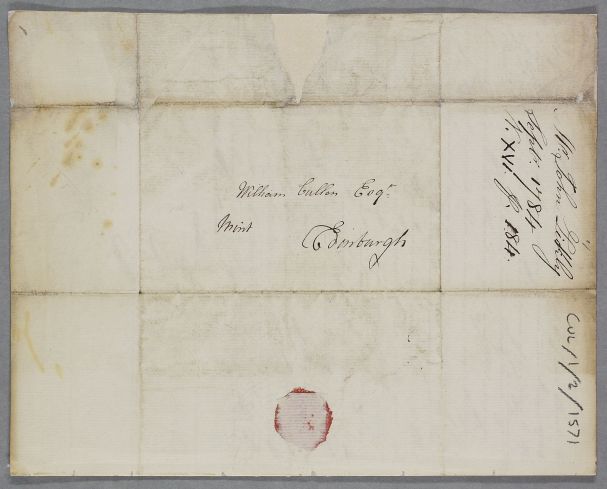 William Cullen Esqr.
Mint
Edinburgh
Mr. John
Septr. 1784
V. XVI. P. 184.
CUL/1/2/1571